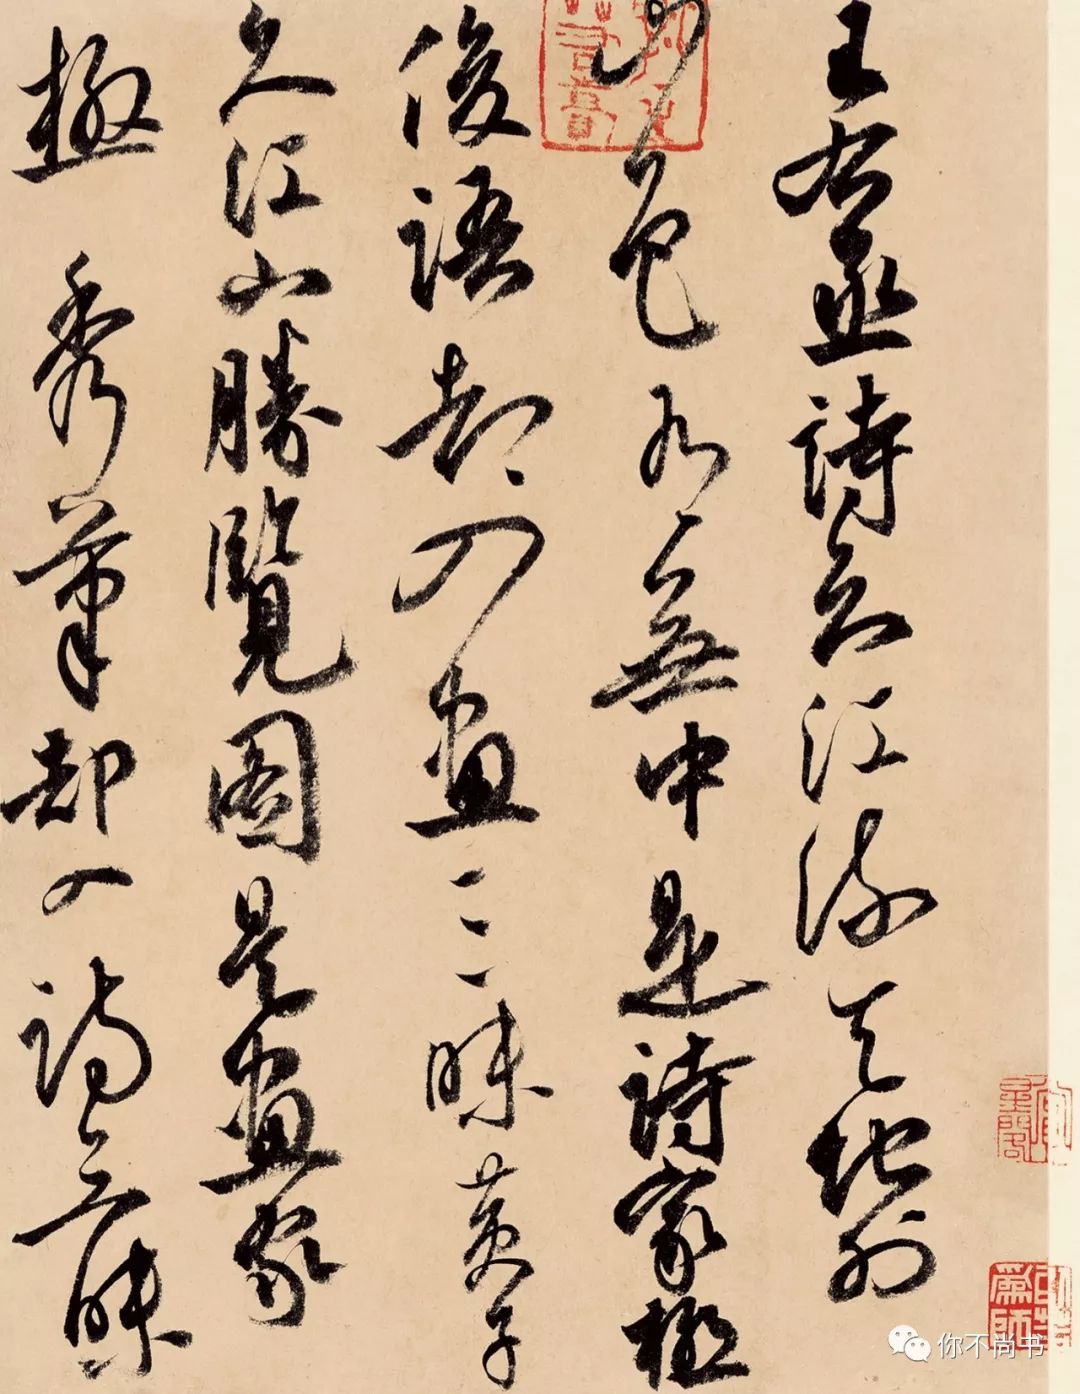 王右丞詩云江流天地外
山色有無中是詩家極
俊語却入畫三昧黄子
久江山勝覽圖是畫家
極秀筆却入詩三昧
你不尚书